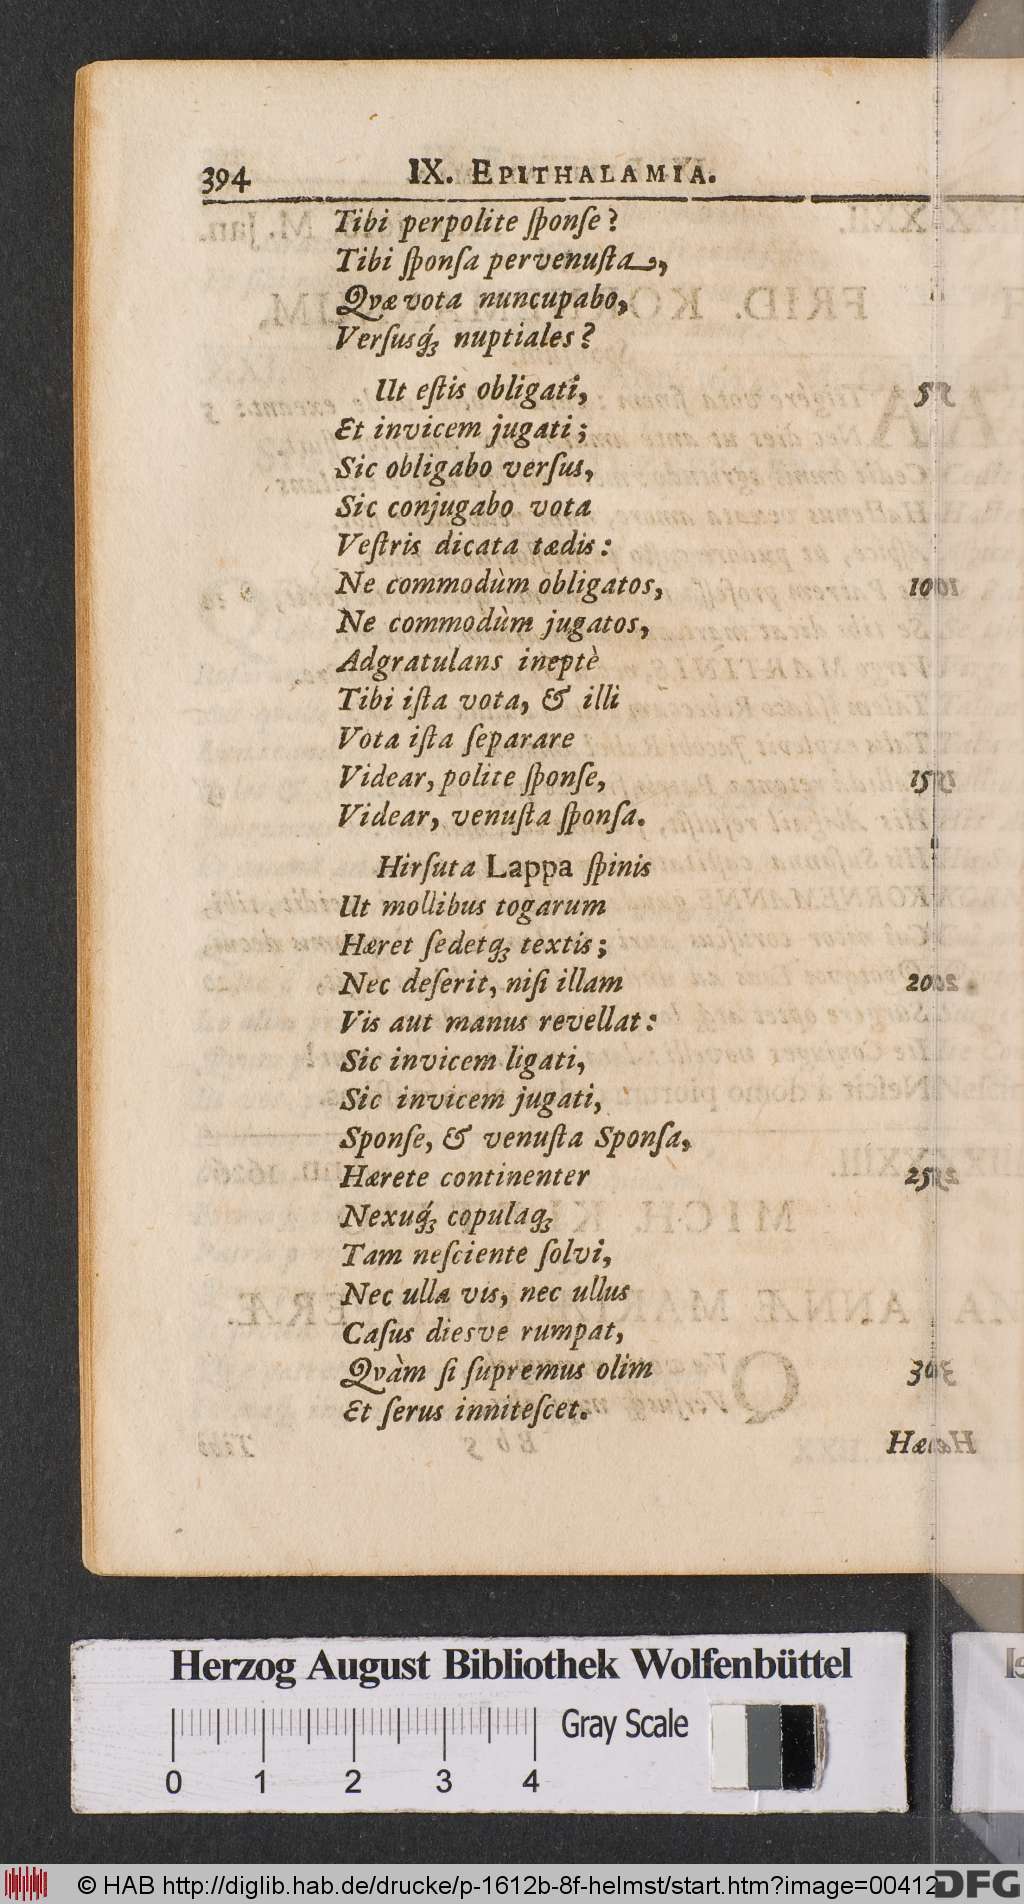 394 IX. EPITHALAMIA.
Tibi perpolite ſponſe?
Tibi ſponſa pervenuſta,
Qvæ vota nuncupabo,
Verſusq́; nuptiales?
Ut eſtis obligati, 5
Et invicem jugati;
Sic obligabo verſus,
Sic conjugabo vota
Veſtris dicata tædis:
Ne commodùm obligatos, 10
Ne commodùm jugatos,
Adgratulans ineptè
Tibi iſta vota, & illi
Vota iſta ſeparare
Videar, polite ſponſe, 15
Videar, venuſta ſponſa.
Hirſuta Lappa ſpinis
Ut mollibus togarum
Hæret ſedetq; textis;
Nec deſerit, niſi illam 20
Vis aut manus revellat:
Sic invicem ligati,
Sic invicem jugati,
Sponſe, & venuſta Sponſa,
Hærete continenter 25
Nexuq́; copulaq;
Tam neſciente ſolvi,
Nec ulla vis, nec ullus
Caſus diesve rumpat,
Qvàm ſi ſupremus olim 30
Et ſerus inniteſcet.
Hæc
Herzog August Bibliothek Wolfenbüttel
Gray Scale
0 1 2 3 4
© HAB http://diglib.hab.de/drucke/p-1612b-8f-helmst/start.htm?image=00412
DFG